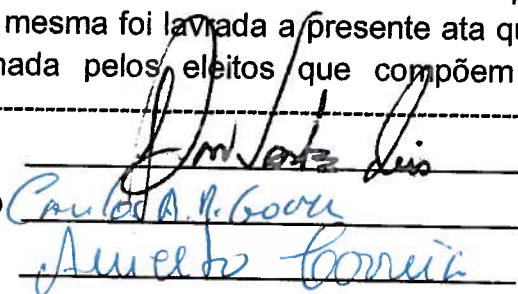 mesma foi lavrada a presente ata qu
nada pelos eleitos que compõem
Carlos A. M.
Correia